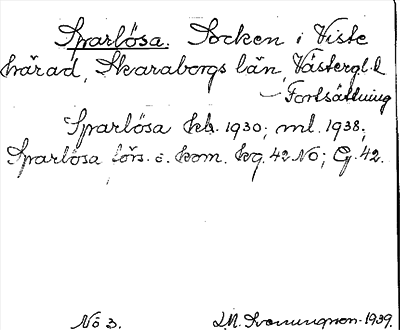 Sparlösa. Socken i Viste
härad, Skaraborgs län, Västergl.
Fortsättning
Sparlösa kb. 1930; ml. 1938;
Sparlösa förs. ö. kom. kg. 42 NO; G. 42.
Nö 3. 1939.